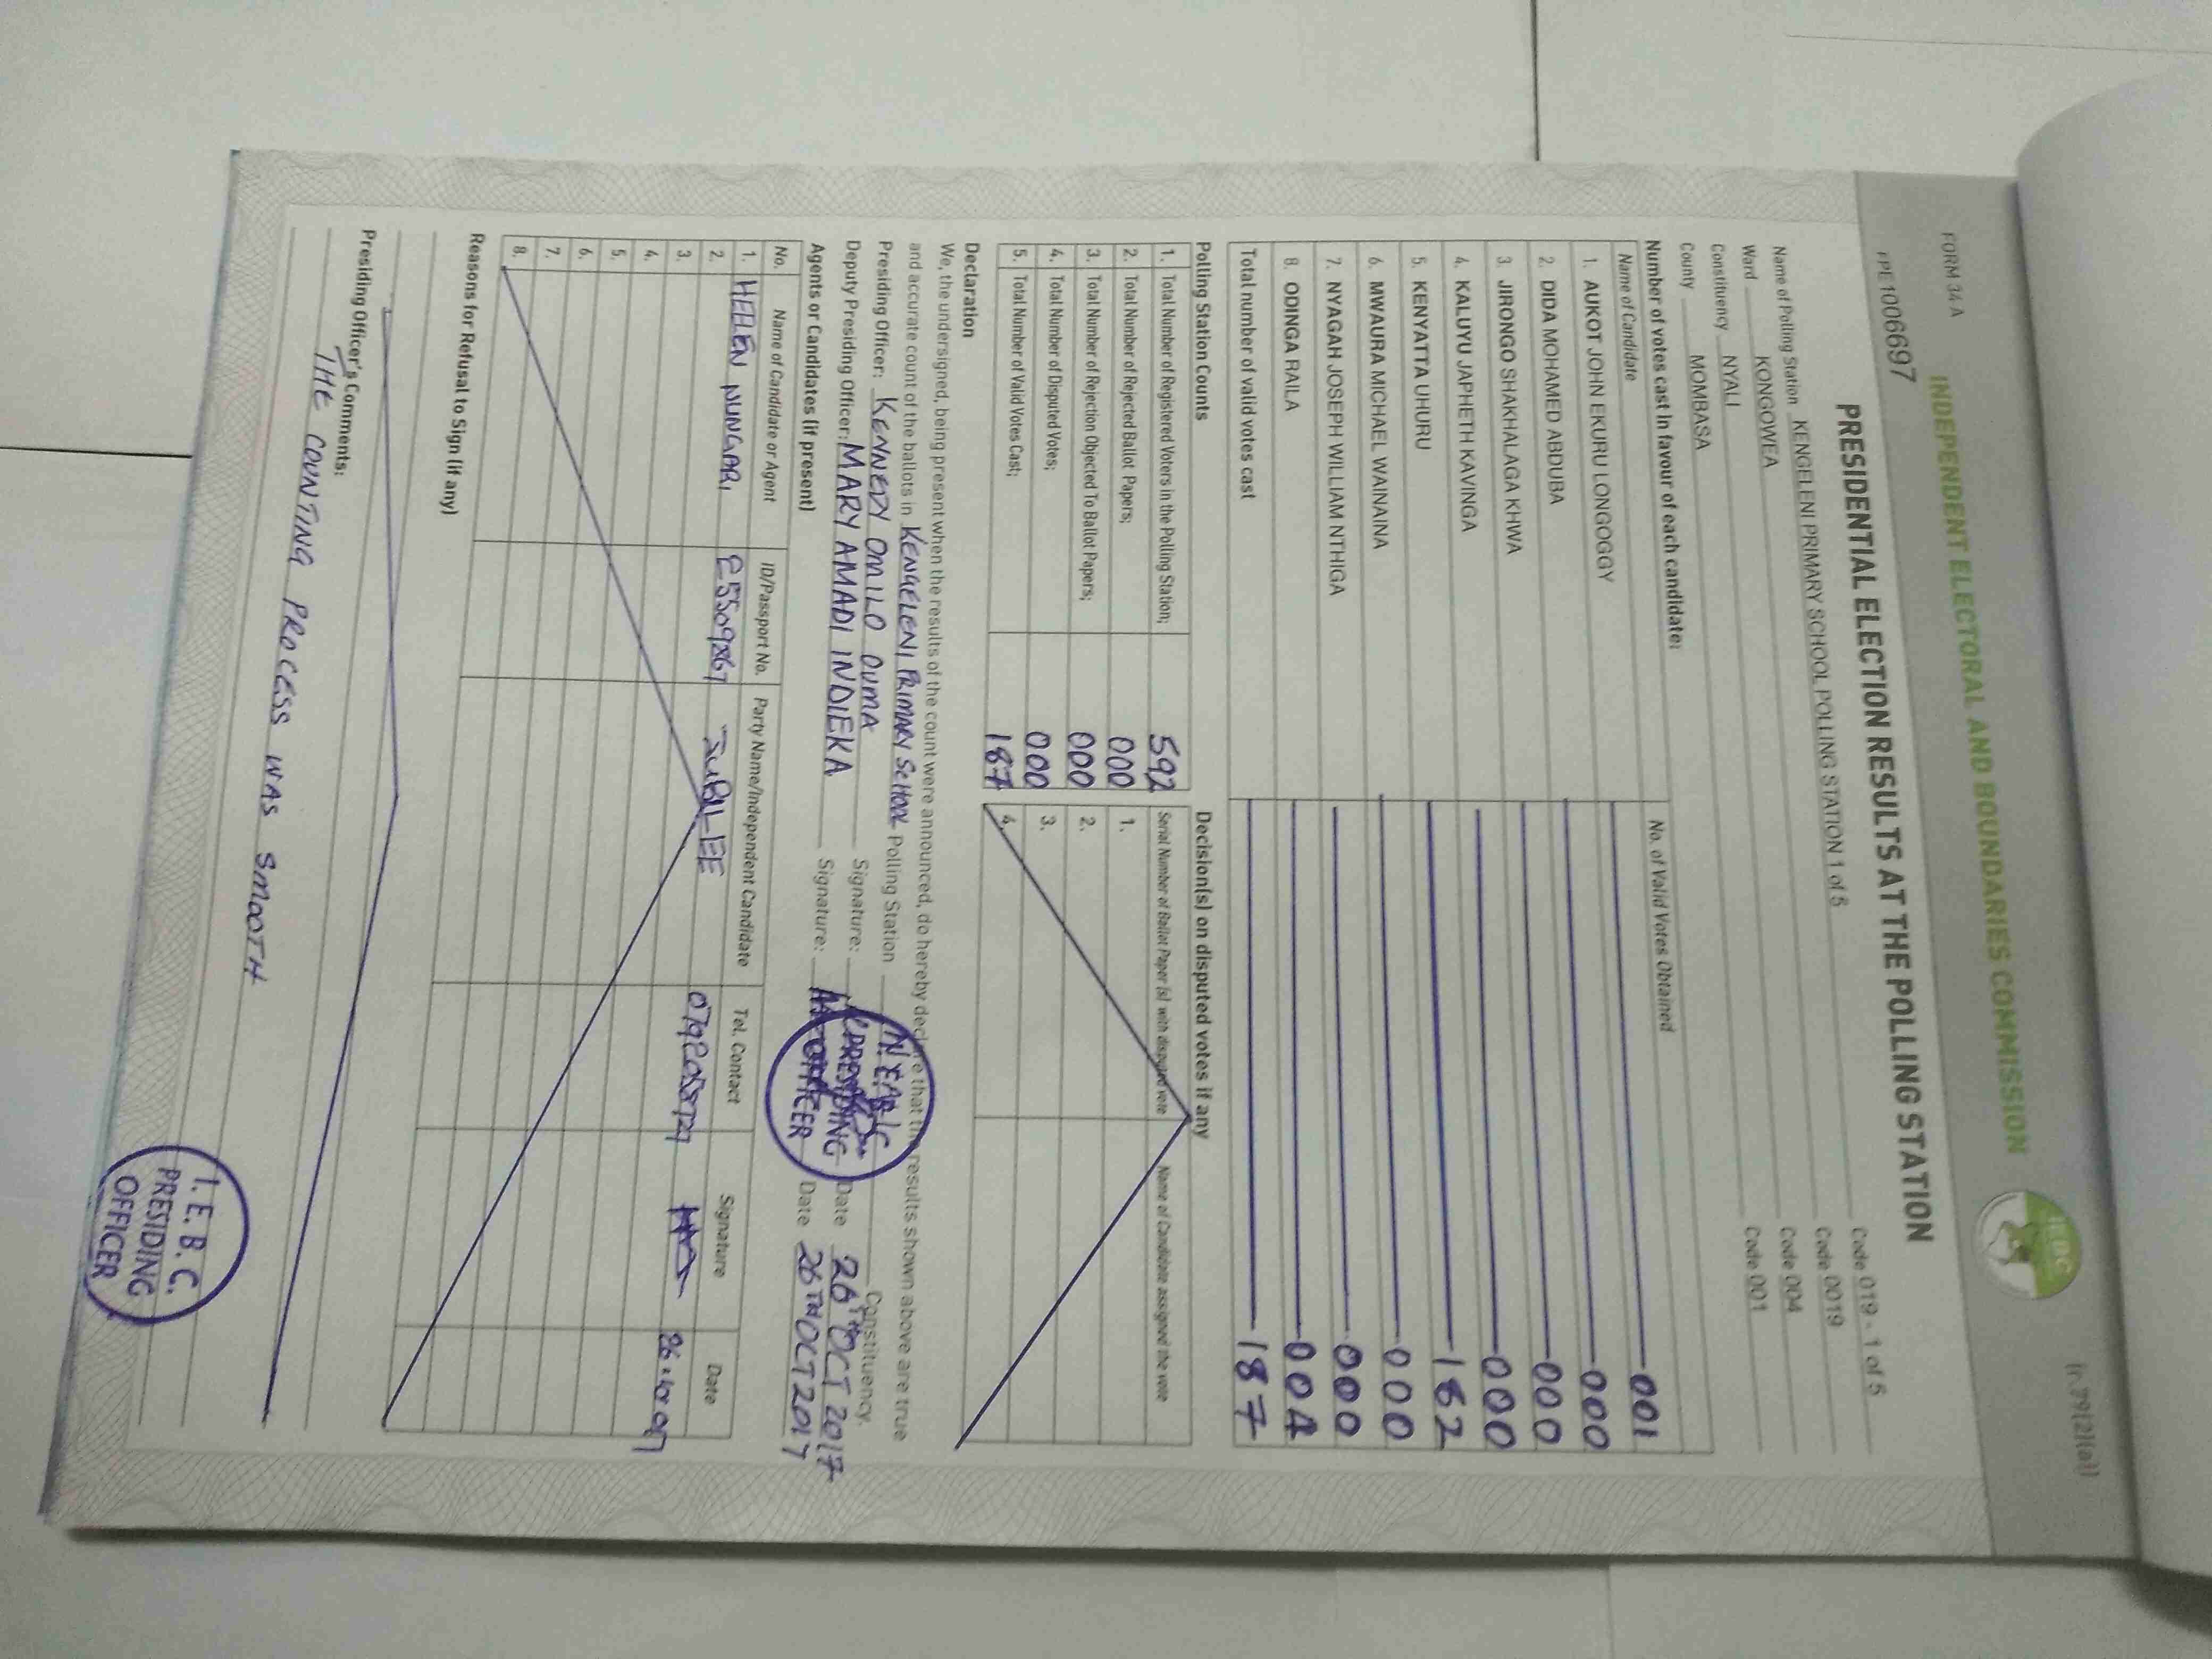 FORM 34 A
(r.79(2)(a))
INDEPENDENT ELECTORAL AND BOUNDARIES COMMISSION
IEBC
PRESIDENTIAL ELECTION RESULTS AT THE POLLING STATION
Name of Polling Station KENGELENI PRIMARY SCHOOL POLLING STATION 1 of 5 Code 019 - 1 of 5
Ward KONGOWEA Code 0019
Constituency NYALI Code 004
County MOMBASA Code 001
Number of votes cast in favour of each candidate:
Name of Candidate No. of Valid Votes Obtained
1. AUKOT JOHN EKURU LONGOGGY 001
2. DIDA MOHAMED ABDUBA 000
3. JIRONGO SHAKHALAGA KHWA 000
4. KALUYU JAPHETH KAVINGA 000
5. KENYATTA UHURU 182
6. MWAURA MICHAEL WAINAINA 000
7. NYAGAH JOSEPH WILLIAM NTHIGA 000
8. ODINGA RAILA 004
Total number of valid votes cast 187
Polling Station Counts
1. Total Number of Registered Voters in the Polling Station; 592
2. Total Number of Rejected Ballot Papers; 000
3. Total Number of Rejection Objected To Ballot Papers; 000
4. Total Number of Disputed Votes; 000
5. Total Number of Valid Votes Cast; 187
Decision(s) on disputed votes if any
Serial Number of Ballot Paper (s) with disputed vote Name of Candidate assigned the vote
1.
2.
3.
4.
Declaration
We, the undersigned, being present when the results of the count were announced, do hereby declare that the results shown above are true
and accurate count of the ballots in KENGELENI PRIMARY SCHOOL Polling Station Constituency.
Presiding Officer: KENNEDY OMILO OUMA Signature: Date 26TH OCT 2017
Deputy Presiding Officer: MARY AMADI INDIEKA Signature: Date 26TH OCT 2017
PRESIDING
OFFICER
Agents or Candidates (if present)
No. Name of Candidate or Agent ID/Passport No. Party Name/Independent Candidate Tel. Contact Signature Date
1. HELLEN NUNGARI JUBILEE
2.
3.
4.
5.
6.
7.
8.
Reasons for Refusal to Sign (if any)
Presiding Officer's Comments:
THE COUNTING PROCESS WAS SMOOTH
I. E. B. C.
PRESIDING
OFFICER